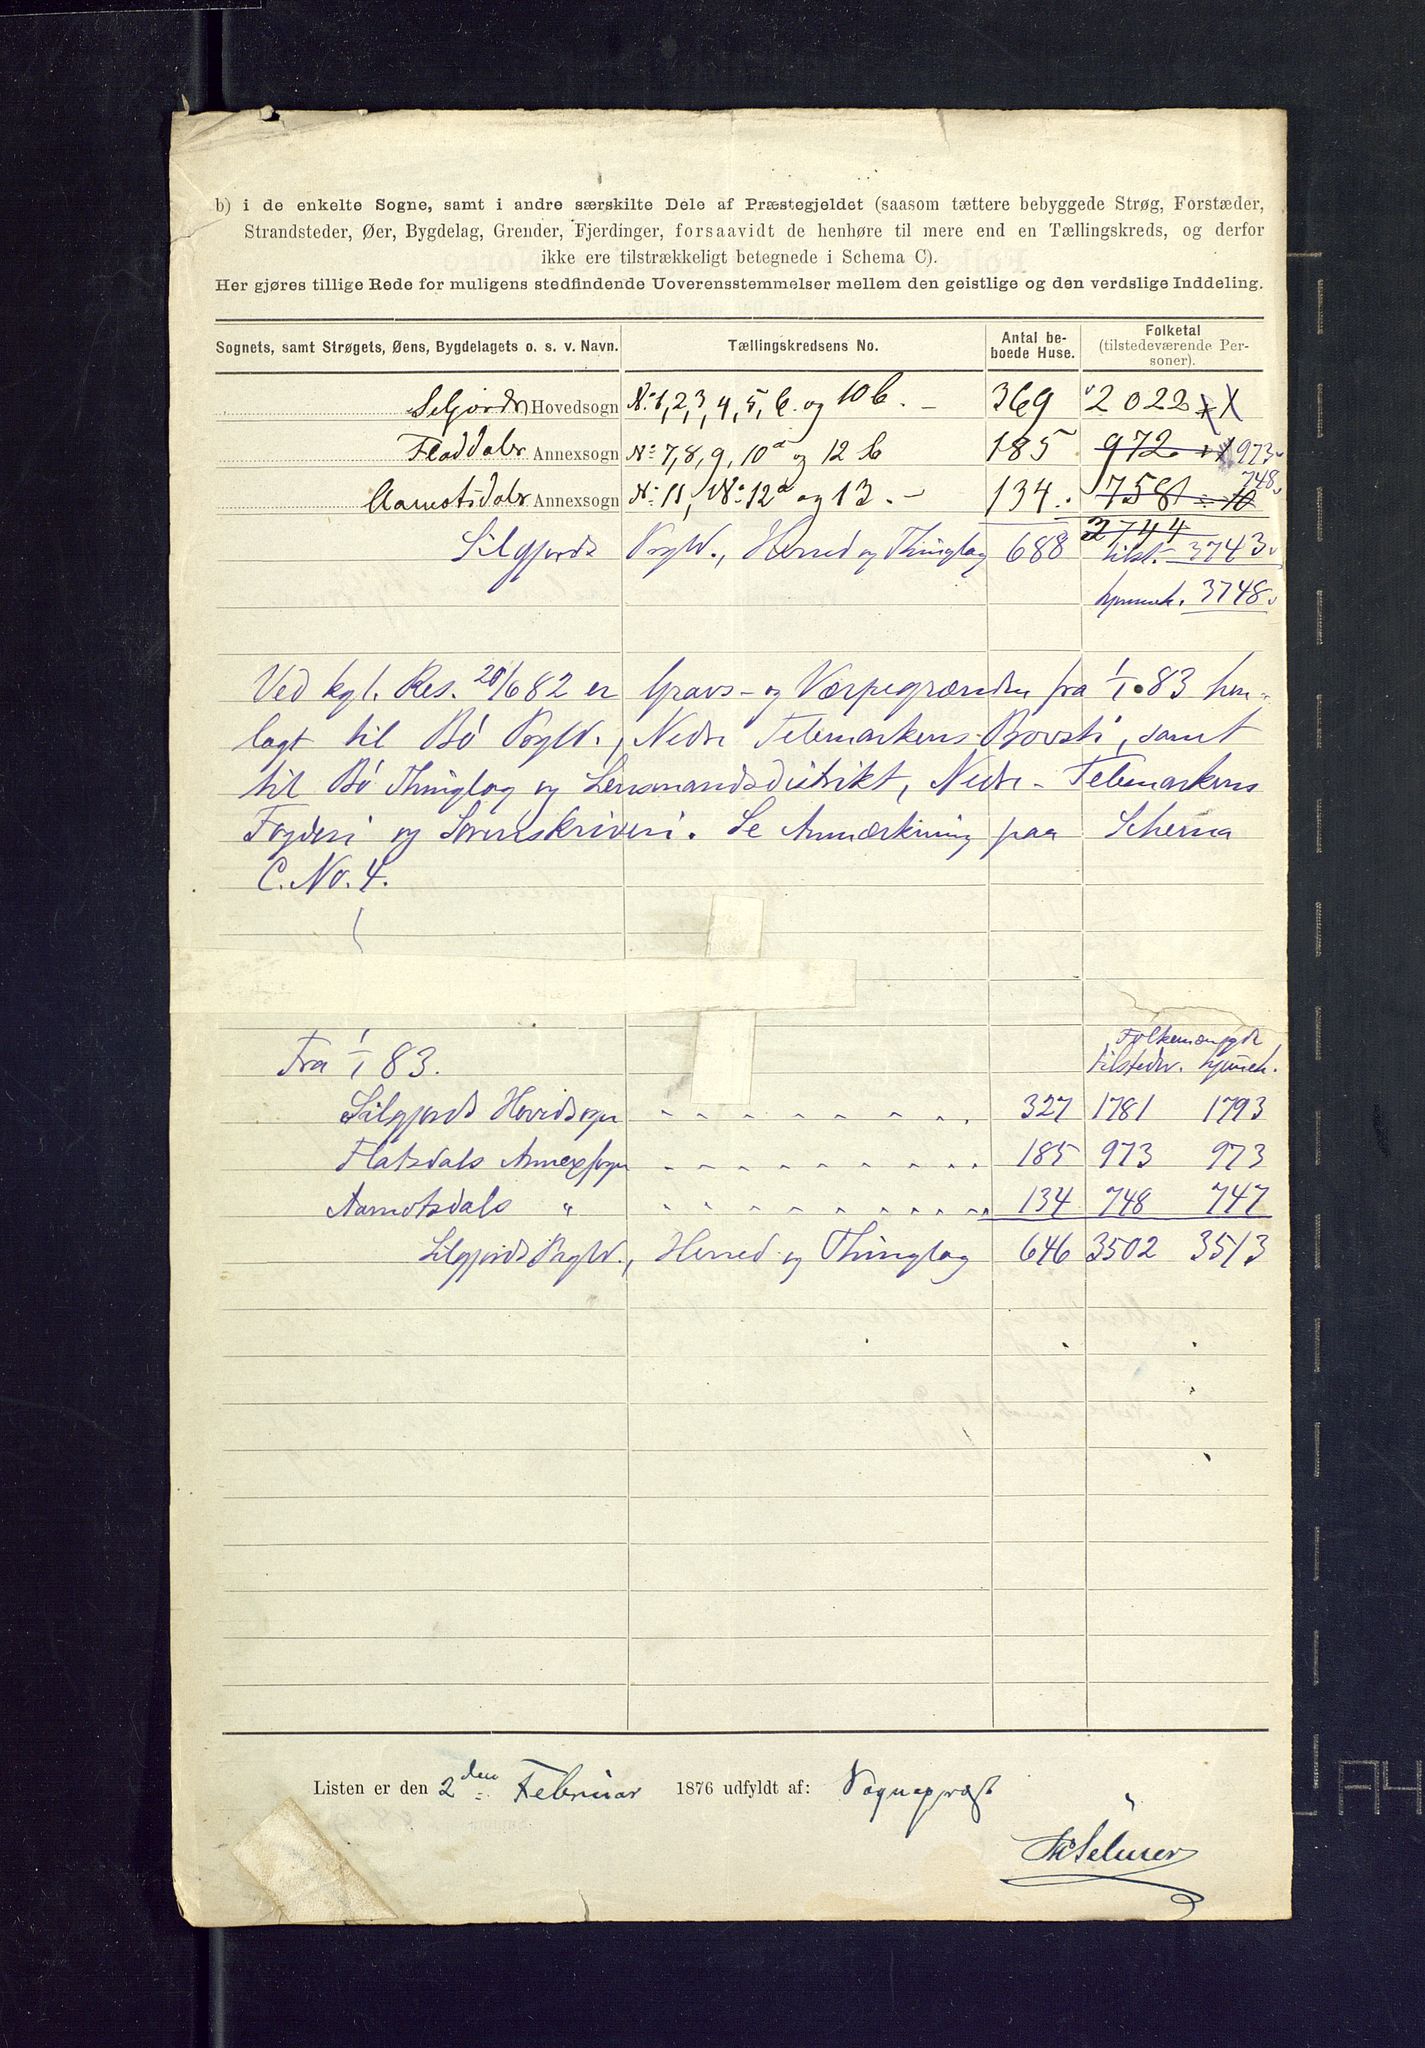 b) i de enkelte Sogne, samt i andre særskilte Dele af Præstegjeldet (saasom tættere bebyggede Strøg, Forstæder,
Strandsteder, Øer, Bygdelag, Grender, Fjerdinger, forsaavidt de henhøre til mere end en Tællingskreds, og derfor
ikke ere tilstrækkeligt betegnede i Schema C).
Her gjøres tillige Rede for muligens stedfindende Uoverensstemmelser mellem den geistlige og den verdslige Inddeling.
Sognets, samt Strøgets, Øens, Bygdelagets o. s. v. Navn. Tællingskredsens No. Antal beboede Huse. Folketal (tilstedeværende Personer).
Seljords Hovedsogn No 1, 2, 3, 4, 5, 6. og 10 b. 369 2022
Fladdals Annexsogn No 7, 8, 9, 10 a og 12 b 185 972 973
Aamotsdals Annexsogn No 11, No 12 a og 13. 134. 758 748
Silgjords Prgld., Herred og Thinglag 688 3744 tilst. 3743
hjemmeh. 3748
Ved kgl. Res. 20/6 82 er Gravs- og Værpegrænden fra 1/1.83 hen-
lagt til Bø Prgld., Nedre Telemarkens Provsti, samt
til Bø Thinglag og Lensmandsdistrikt, Nedre-Telemarkens
Fogderi og Sorenskriveri. Se Anmærkning paa Schema
C. No. 4.
Folkemængde
Fra 1/1 83. tilstedev. hjmeh.
Silgjords Hovedsogn 327 1781 1793
Flatsdals Annexsogn 185 973 973
Aamotsdals " 134 748 747
Silgjords Prgld., Herred og Thinglag 646 3502 3513
Listen er den 2den Februar 1876 udfyldt af: Sognepræst
Selmer